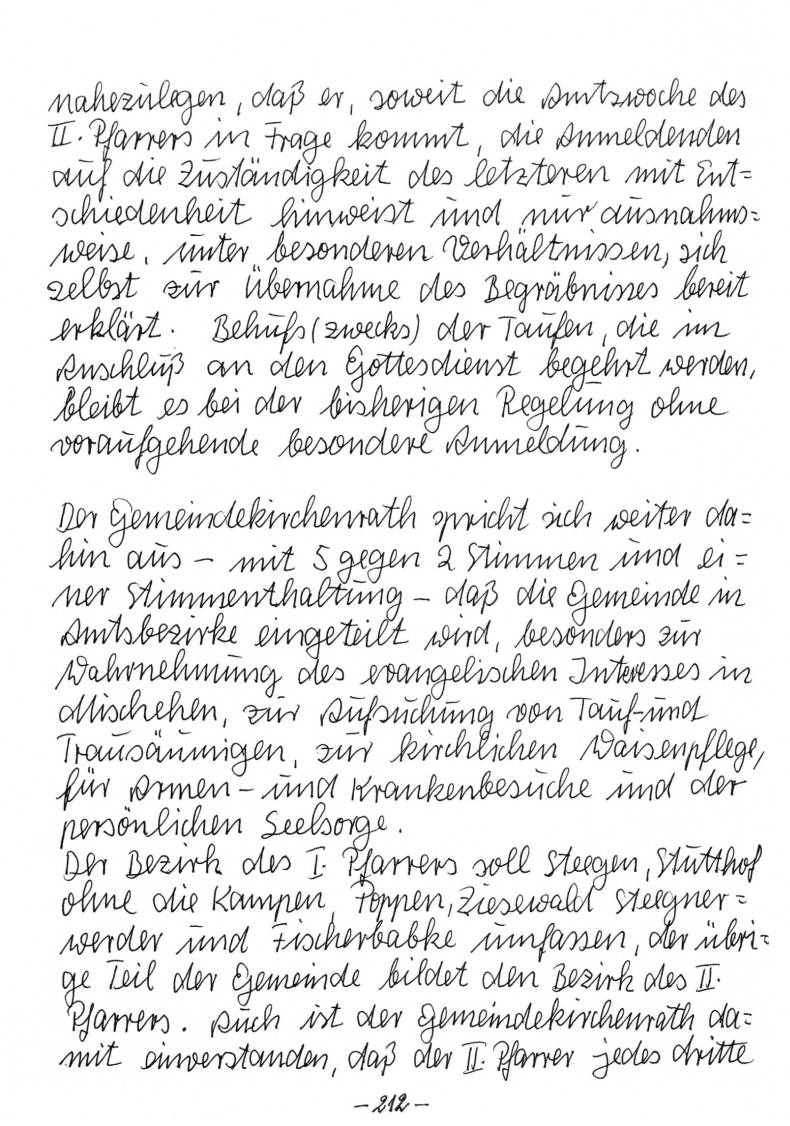 nahezulegen, daß er, soweit die Amtswoche des
II. Pfarrers in Frage kommt, die Anmeldenden
auf die Zuständigkeit des letzteren mit Ent=
schiedenheit hinweist und nur ausnahms=
weise, unter besonderen Verhältnissen, sich
selbst zur Übernahme des Begräbnisses bereit
erklärt. Behufs (zwecks) der Taufen, die im
Anschluß an den Gottesdienst begehrt werden,
bleibt es bei der bisherigen Regelung ohne
voraufgehende besondere Anmeldung.
Der Gemeindekirchenrath spricht sich weiter da=
hin aus – mit 5 gegen 2 Stimmen und ei=
ner Stimmenthaltung – daß die Gemeinde in
Amtsbezirke eingeteilt wird, besonders zur
Wahrnehmung des evangelischen Interesses in
Mischehen, zur Aufsuchung von Tauf- und
Trausäumigen, zur kirchlichen Waisenpflege,
für Armen- und Krankenbesuche und der
persönlichen Seelsorge.
Der Bezirk des I. Pfarrers soll Steegen, Stutthof
ohne die Kampen, Poppen, Ziesewald Steegner=
werder und Fischerbabke umfassen, der übri=
ge Teil der Gemeinde bildet den Bezirk des II.
Pfarrers. Auch ist der Gemeindekirchenrath da=
mit einverstanden, daß der II. Pfarrer jedes dritte
– 212 –